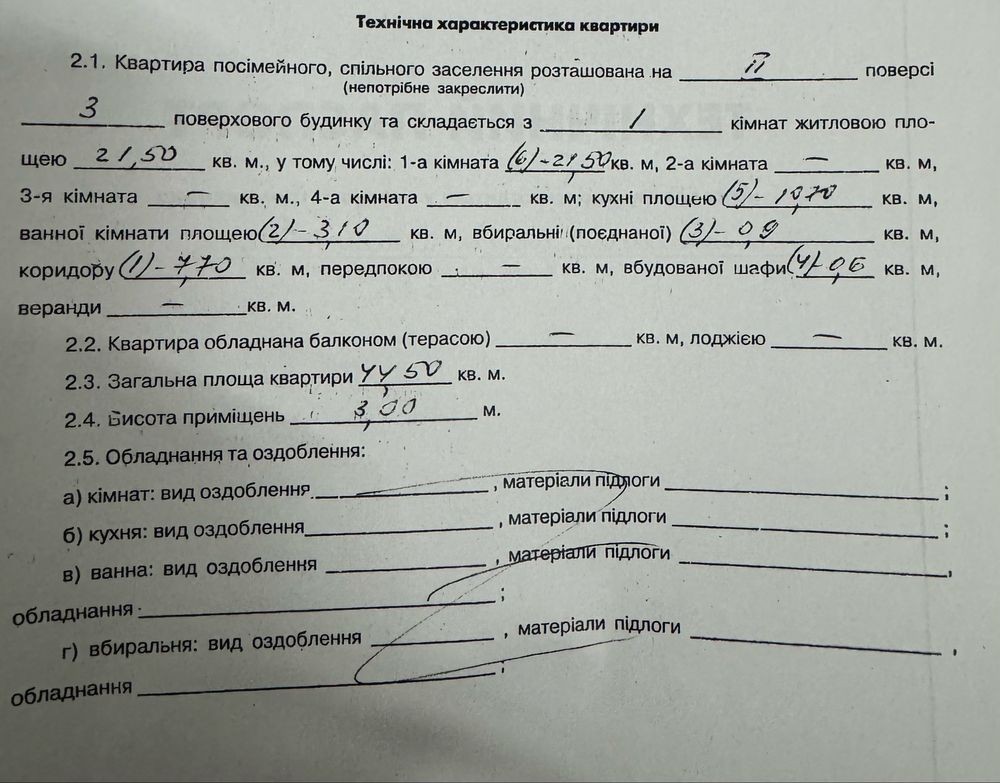 Технічна характеристика квартири
2.1. Квартира посімейного, спільного заселення розташована на II поверсі
(непотрібне закреслити)
3 поверхового будинку та складається з 1 кімнат житловою пло-
щею 21,50 кв. м., у тому числі: 1-а кімната (6)-21,50 кв. м, 2-а кімната — кв. м,
3-я кімната — кв. м., 4-а кімната — кв. м; кухні площею (5)- 10,70 кв. м,
ванної кімнати площею (2)- 3,10 кв. м, вбиральні (поєднаної) (3)- 0,9 кв. м,
коридору (1)- 7,70 кв. м, передпокою — кв. м, вбудованої шафи (4)-0,6 кв. м,
веранди — кв. м.
2.2. Квартира обладнана балконом (терасою) — кв. м, лоджією — кв. м.
2.3. Загальна площа квартири 44,50 кв. м.
2.4. Висота приміщень 3,00 м.
2.5. Обладнання та оздоблення:
а) кімнат: вид оздоблення , матеріали підлоги ;
б) кухня: вид оздоблення , матеріали підлоги ;
в) ванна: вид оздоблення , матеріали підлоги ,
обладнання ;
г) вбиральня: вид оздоблення , матеріали підлоги ,
обладнання ;